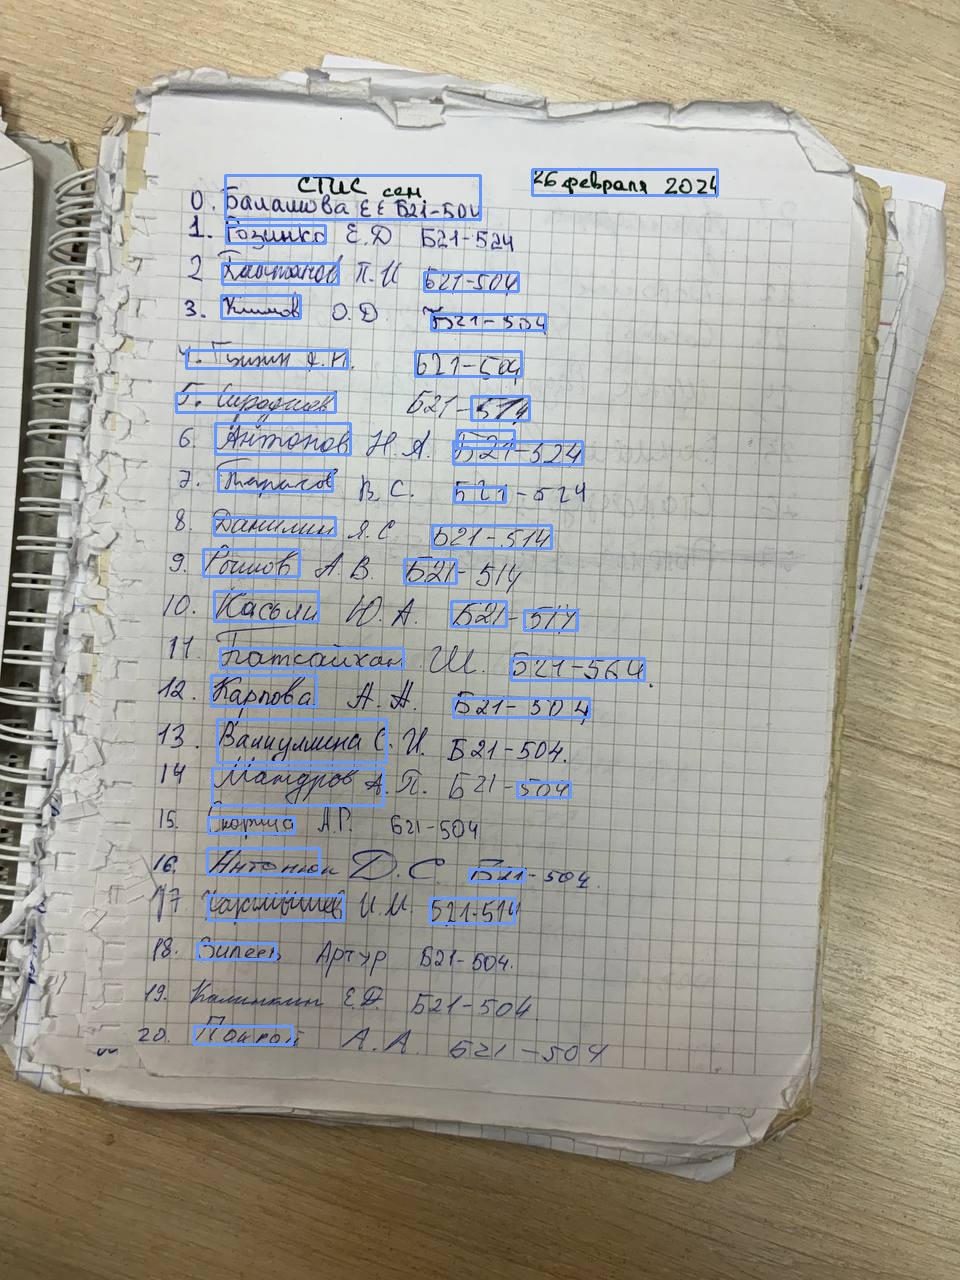 СТИС сем 26 февраля 2024
0. Балашова Е Е Б21-504
1. Гозинко Е.Д Б21-524
2 П.И Б21-504
3. Климов О.Д Б21-504
4. Б21-504
5. Б21-514
6. Антонов Н.А. Б21-524
7. Тарасов В.С. Б21-524
8. Данилин Я.С Б21-514
9. Рыжов А.В. Б21-514
10. Касьли Ю.А. Б21-514
11. Батсайхан Ш. Б21-564.
12. Карпова А.А. Б21-504
13. Валиуллина С.И. Б21-504.
14 Мандров А.П. Б21-504
15. А.Р. Б21-504
16. Антонюк Д.С. Б21-504.
17 И.М. Б21-514
18. Зилеев Артур Б21-504.
19. Калинкин Е.Д. Б21-504.
20. А.А. Б21-504